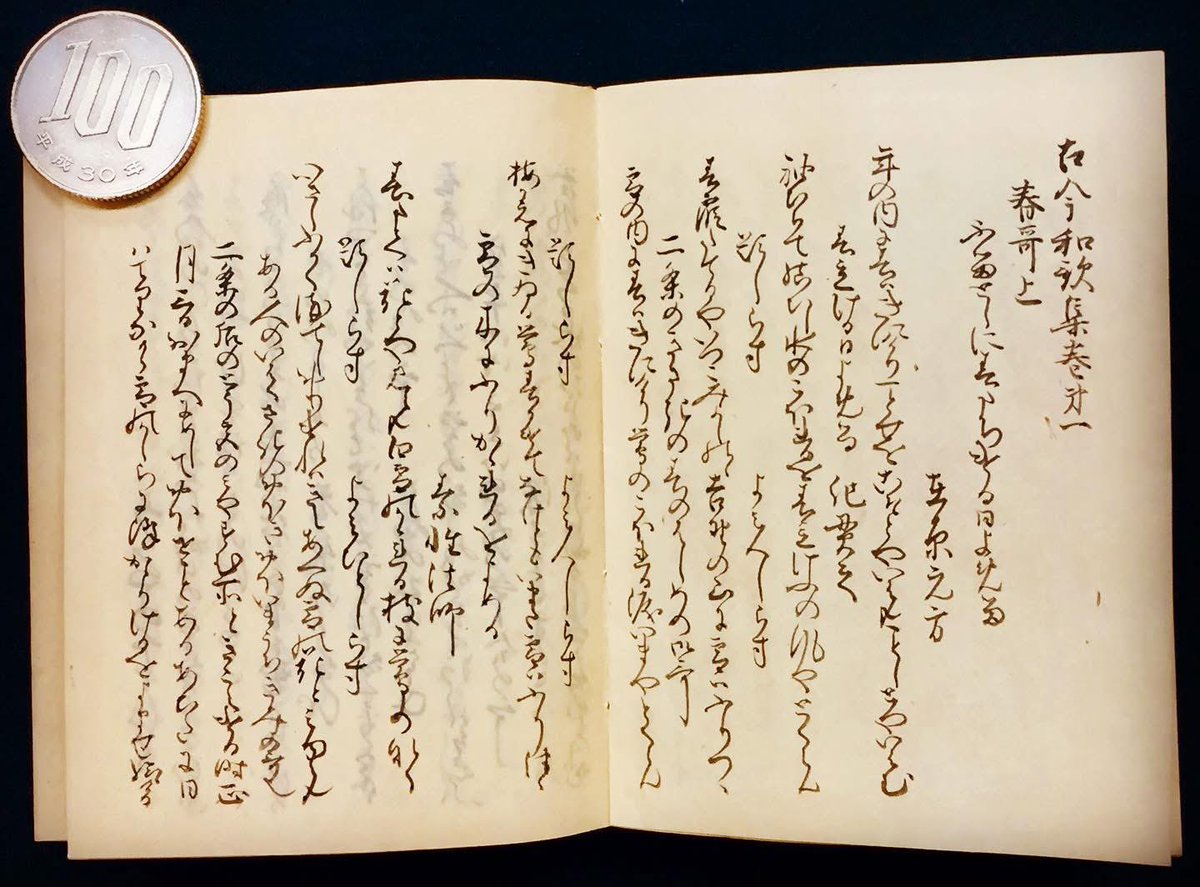 100
平成30年
古今和歌集巻第一
春哥上
ふるとしに春たちける日よめる
在原元方
年の内に春はきにけり一とせをこそとやいはんことしとやいはむ
春立ける日よめる 紀貫之
袖ひちて結ひし水のこほれるを春立けふの風やとくらん
題しらす よみ人しらす
春霞たてるやいつこみよしのゝ吉野の山に雪はふりつゝ
二条のきさきの春のはしめの御哥
雪の内に春はきにけり鶯のこほれる涙いまやとくらん
題しらす よみ人しらす
梅かえにきゐる鶯春かけてなけともいまた雪はふりつゝ
雪の木にふりかゝれるをよめる
素性法師
春たては花とや見らん白雪のかゝれる枝に鶯のなく
題しらす よみ人しらす
心さしふかく染てし
ある人のいはくさきのおほきおほいまうちきみの哥也
二条の后のとう宮のみやすむ所ときこえける時正
月三日おまへにめしておほせことあるあひたに日
はてりなから雪のかしらに